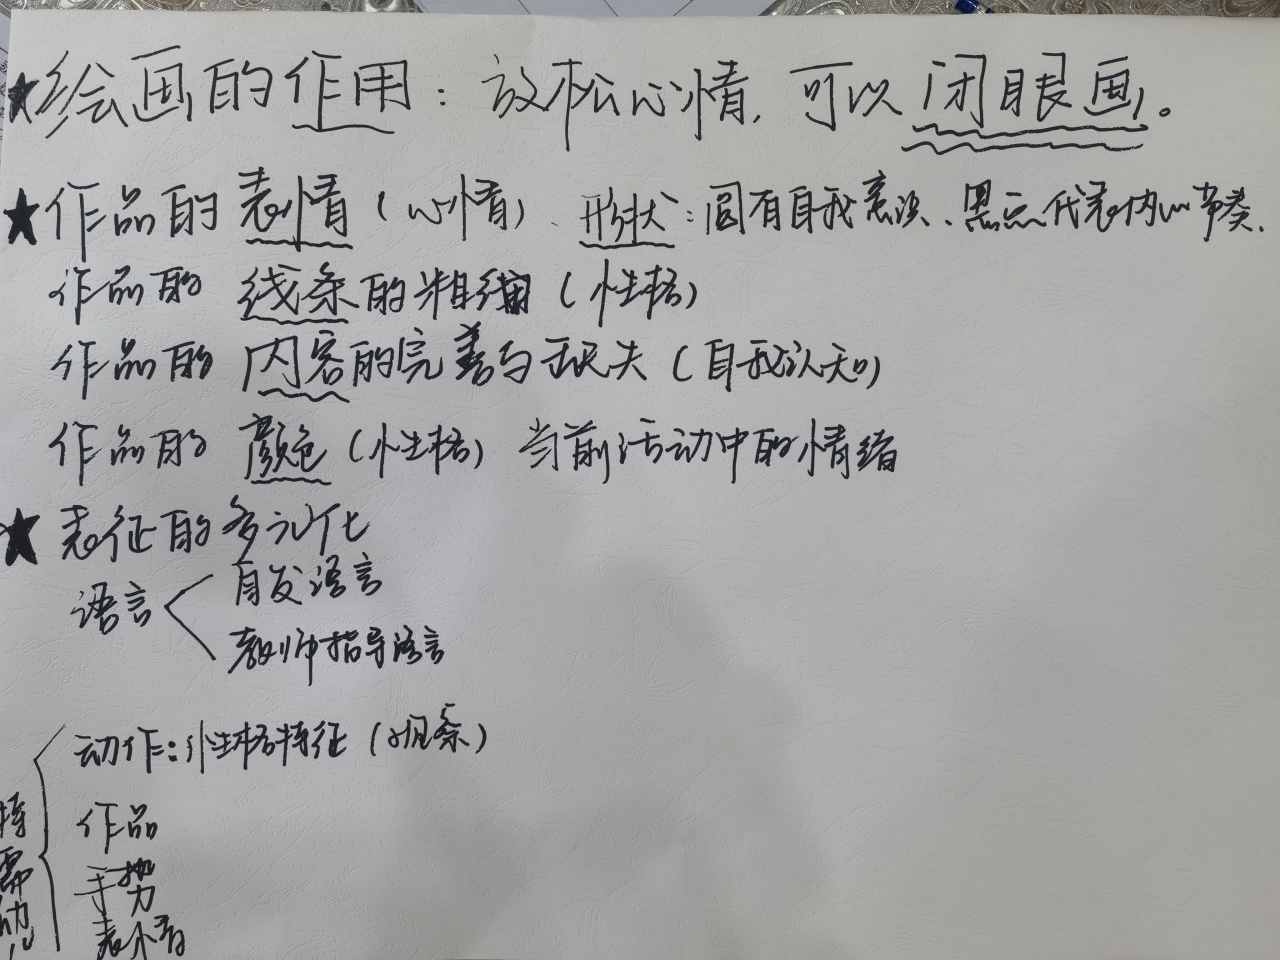 ★绘画的作用：放松心情，可以闭眼画。
★作品的表情（心情）、形状：圆有自我意识、黑点代表内心节奏.
作品的 线条的粗细（性格）
作品的 内容的完善与丢失（自我认知）
作品的 颜色（性格）当前活动中的情绪
★表征的多元化
语言
自发语言
教师指导语言
特需幼儿
动作：性格特征（观察）
作品
手势
表情